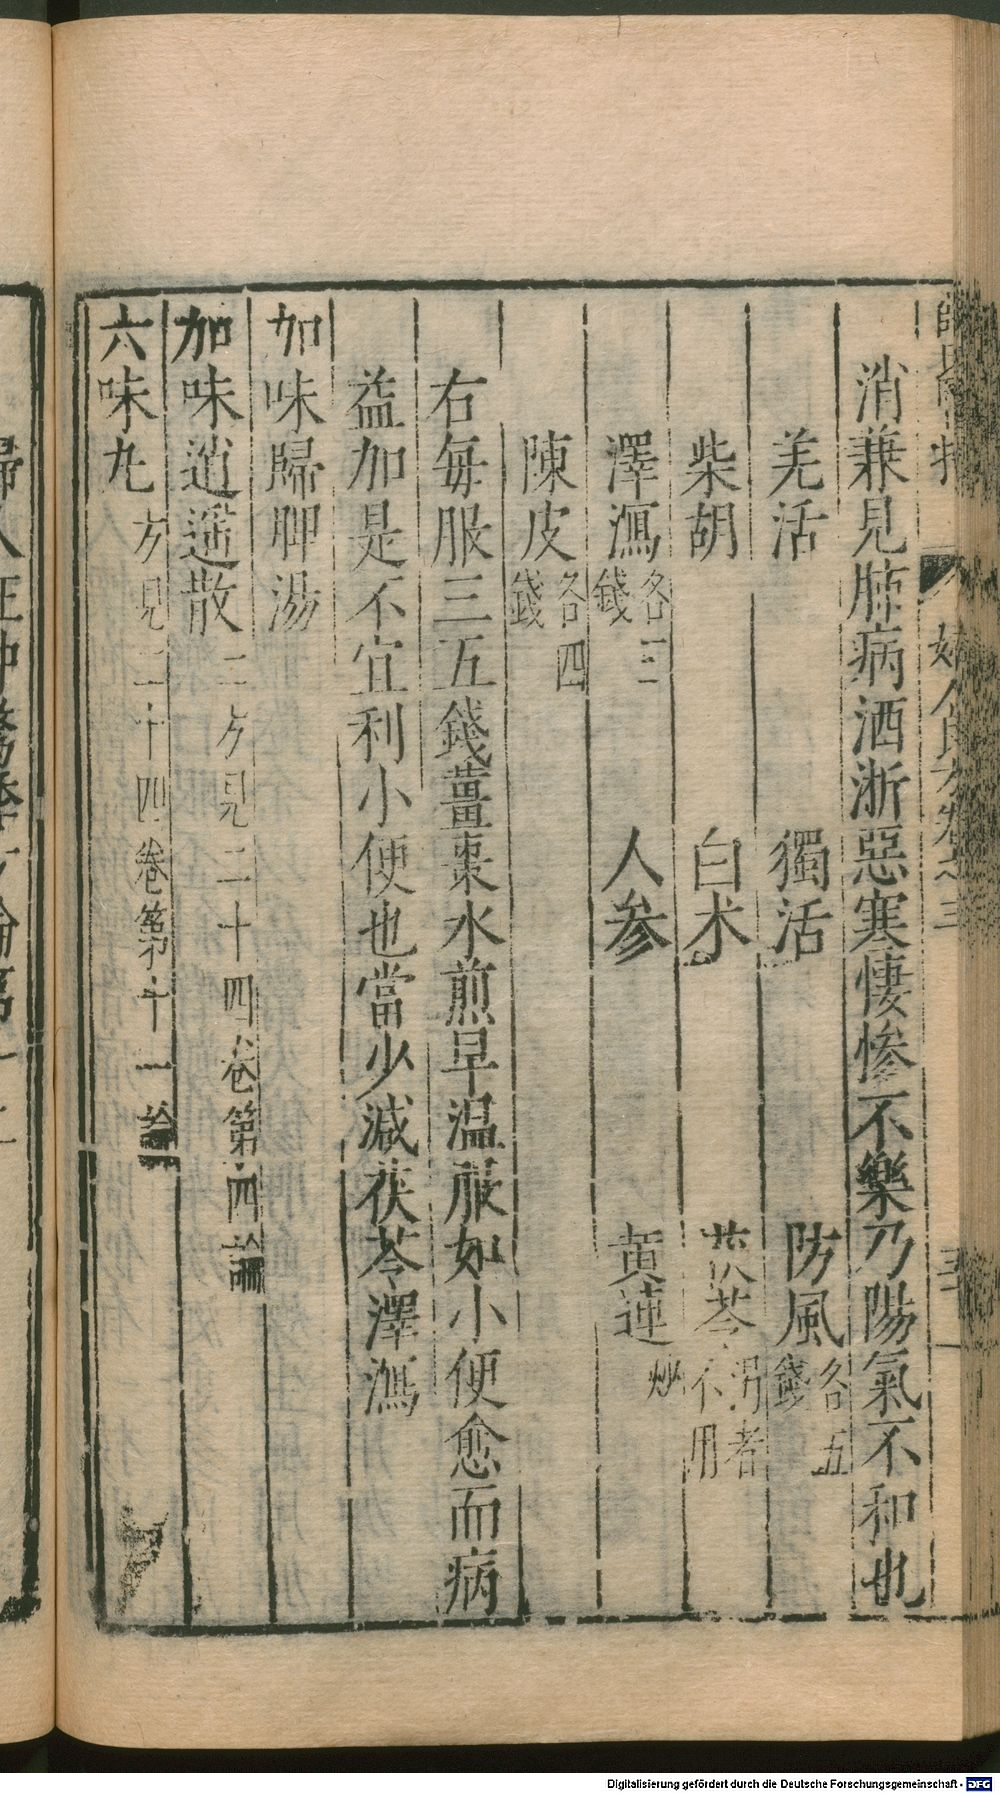 消兼見肺病洒淅惡寒悽慘不樂乃陽氣不和也
羌活 獨活 防風各五錢
柴胡 白术 茯苓渴者不用
澤瀉各三錢 人参 黄連炒
陳皮各四錢
右每服三五錢薑棗水煎早温服如小便愈而病
益加是不宜利小便也當少減茯苓澤瀉
加味歸脾湯
加味逍遥散二方見二十四卷第四論
六味丸方見二十四卷第十一論
婦人良方卷之三
Digitalisierung gefördert durch die Deutsche Forschungsgemeinschaft - DFG